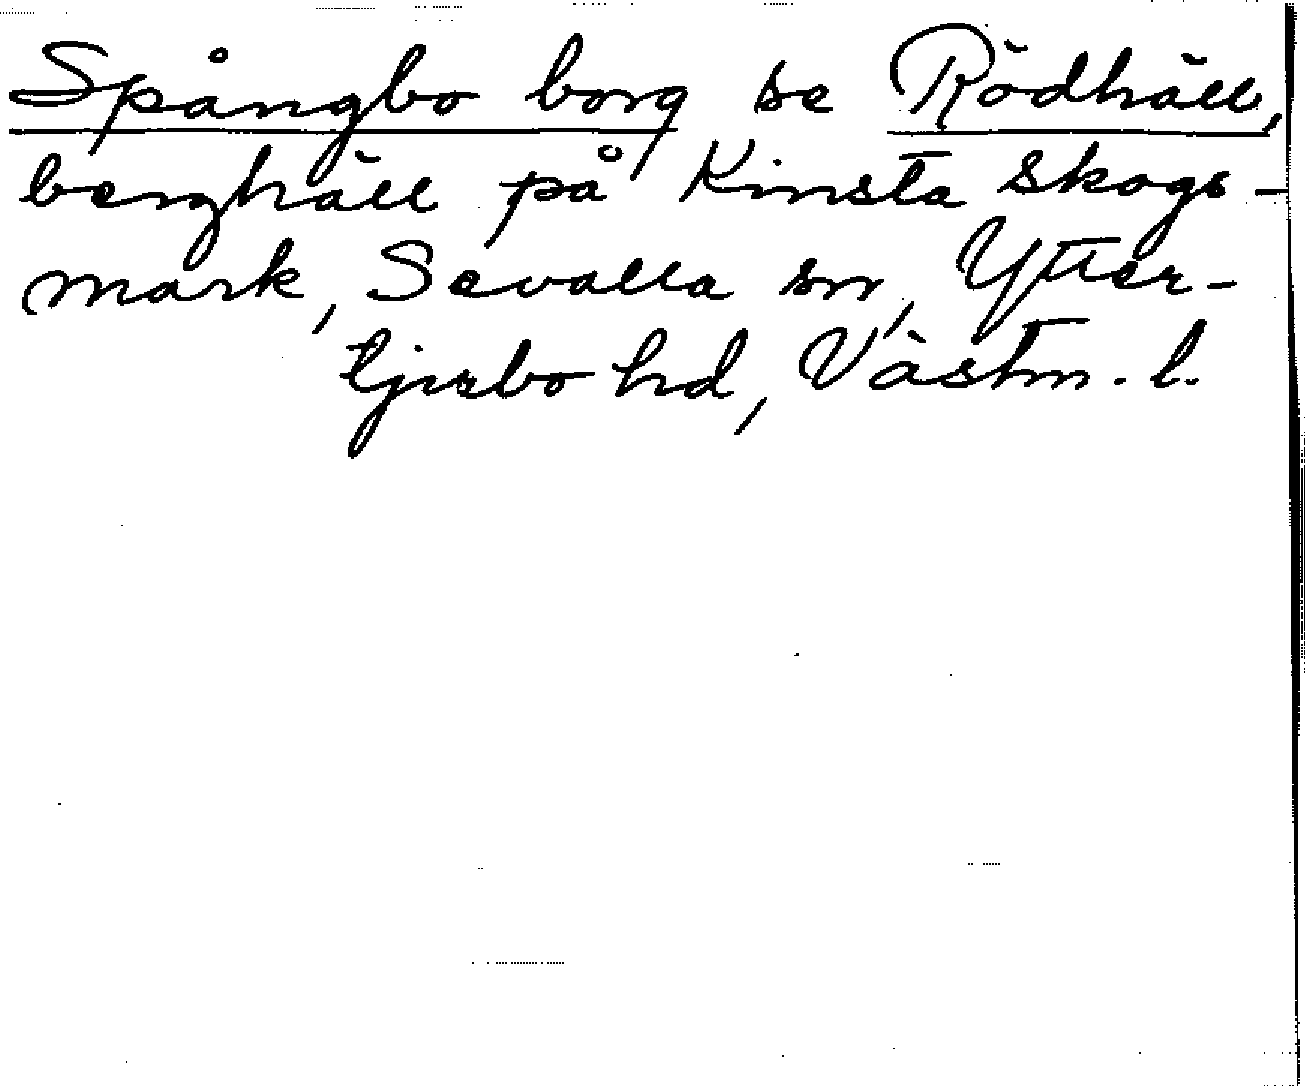 Spångbo borg se Rödhäll,
berghäll på Kinsta skogs-
mark, Sevalla sn, Ytter-
tjurbo hd, Västm. l.